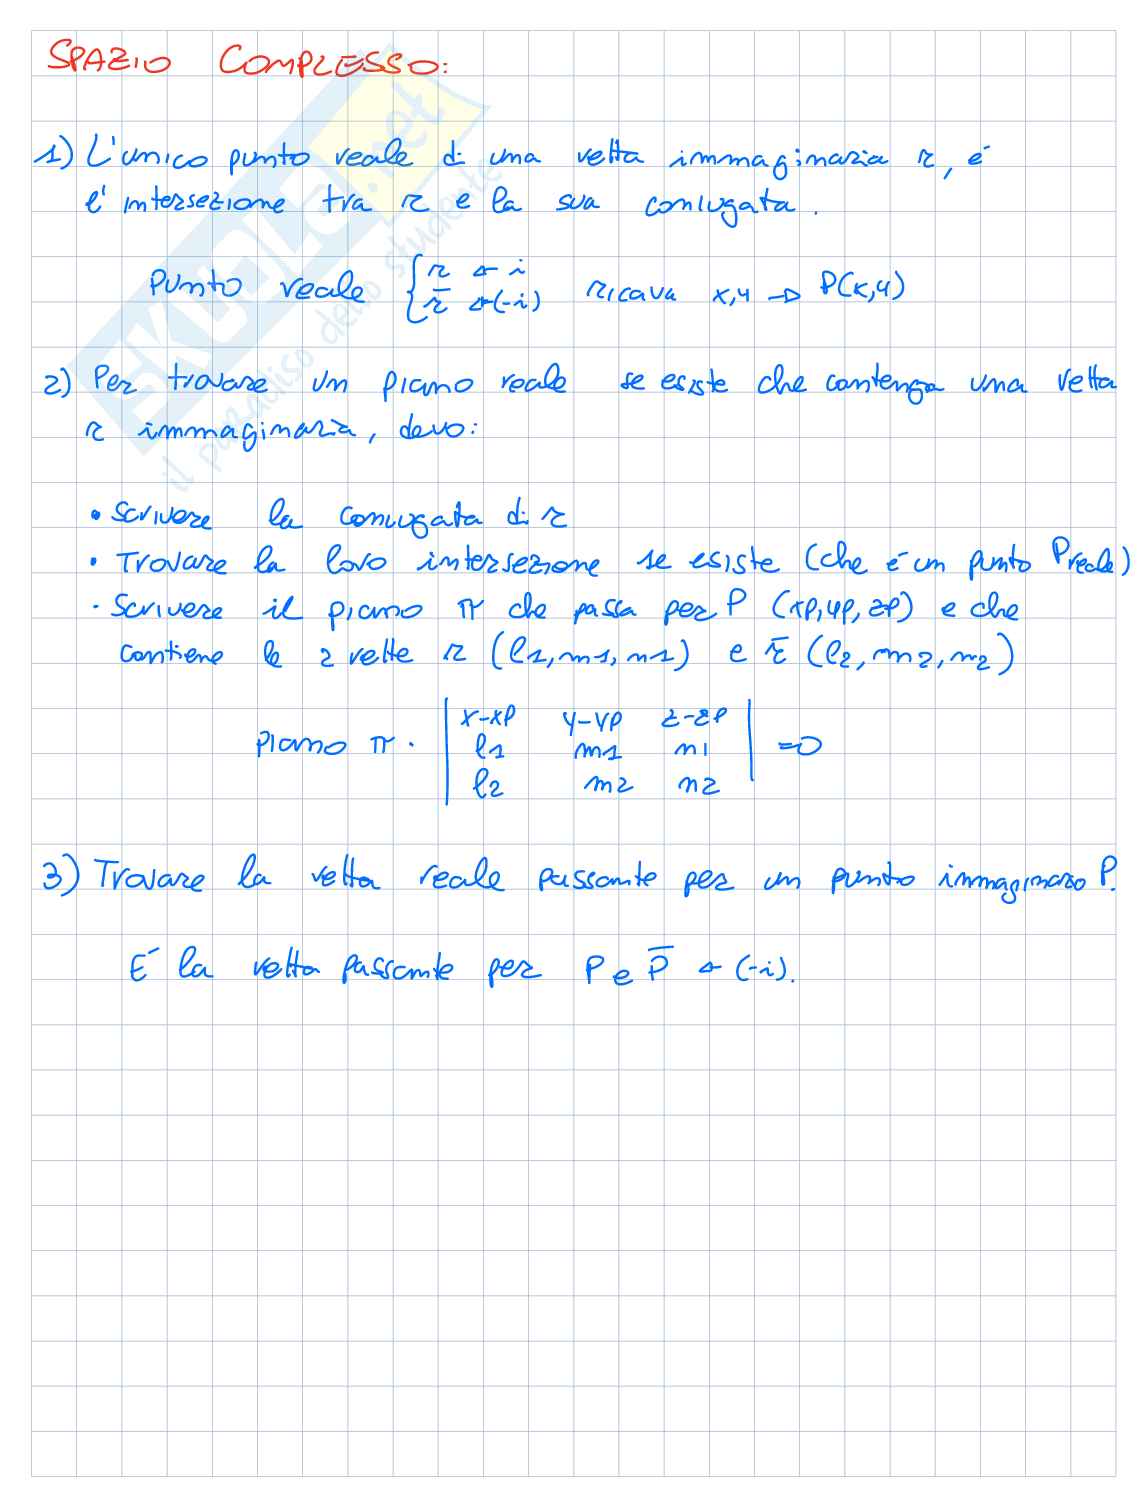 SPAZIO COMPLESSO:
1) L'unico punto reale di una retta immaginaria r, é
l'intersezione tra r e la sua coniugata.
Punto reale { r ← i
r̄ ←(-i) ricava x,y → P(x,y)
2) Per trovare un piano reale se esiste che contenga una retta
r immaginaria, devo:
• Scrivere la coniugata di r
• Trovare la loro intersezione se esiste (che é un punto P reale)
• Scrivere il piano π che passa per P (xp,yp,zp) e che
contiene le 2 rette r (l1,m1,n1) e r̄ (l2,m2,n2)
Piano π. | x-xp y-yp z-zp |
| l1 m1 n1 | =0
| l2 m2 n2 |
3) Trovare la retta reale passante per un punto immaginario P.
É la retta passante per P e P̄ ← (-i).
SKUOLA.net
il paradiso dello studente